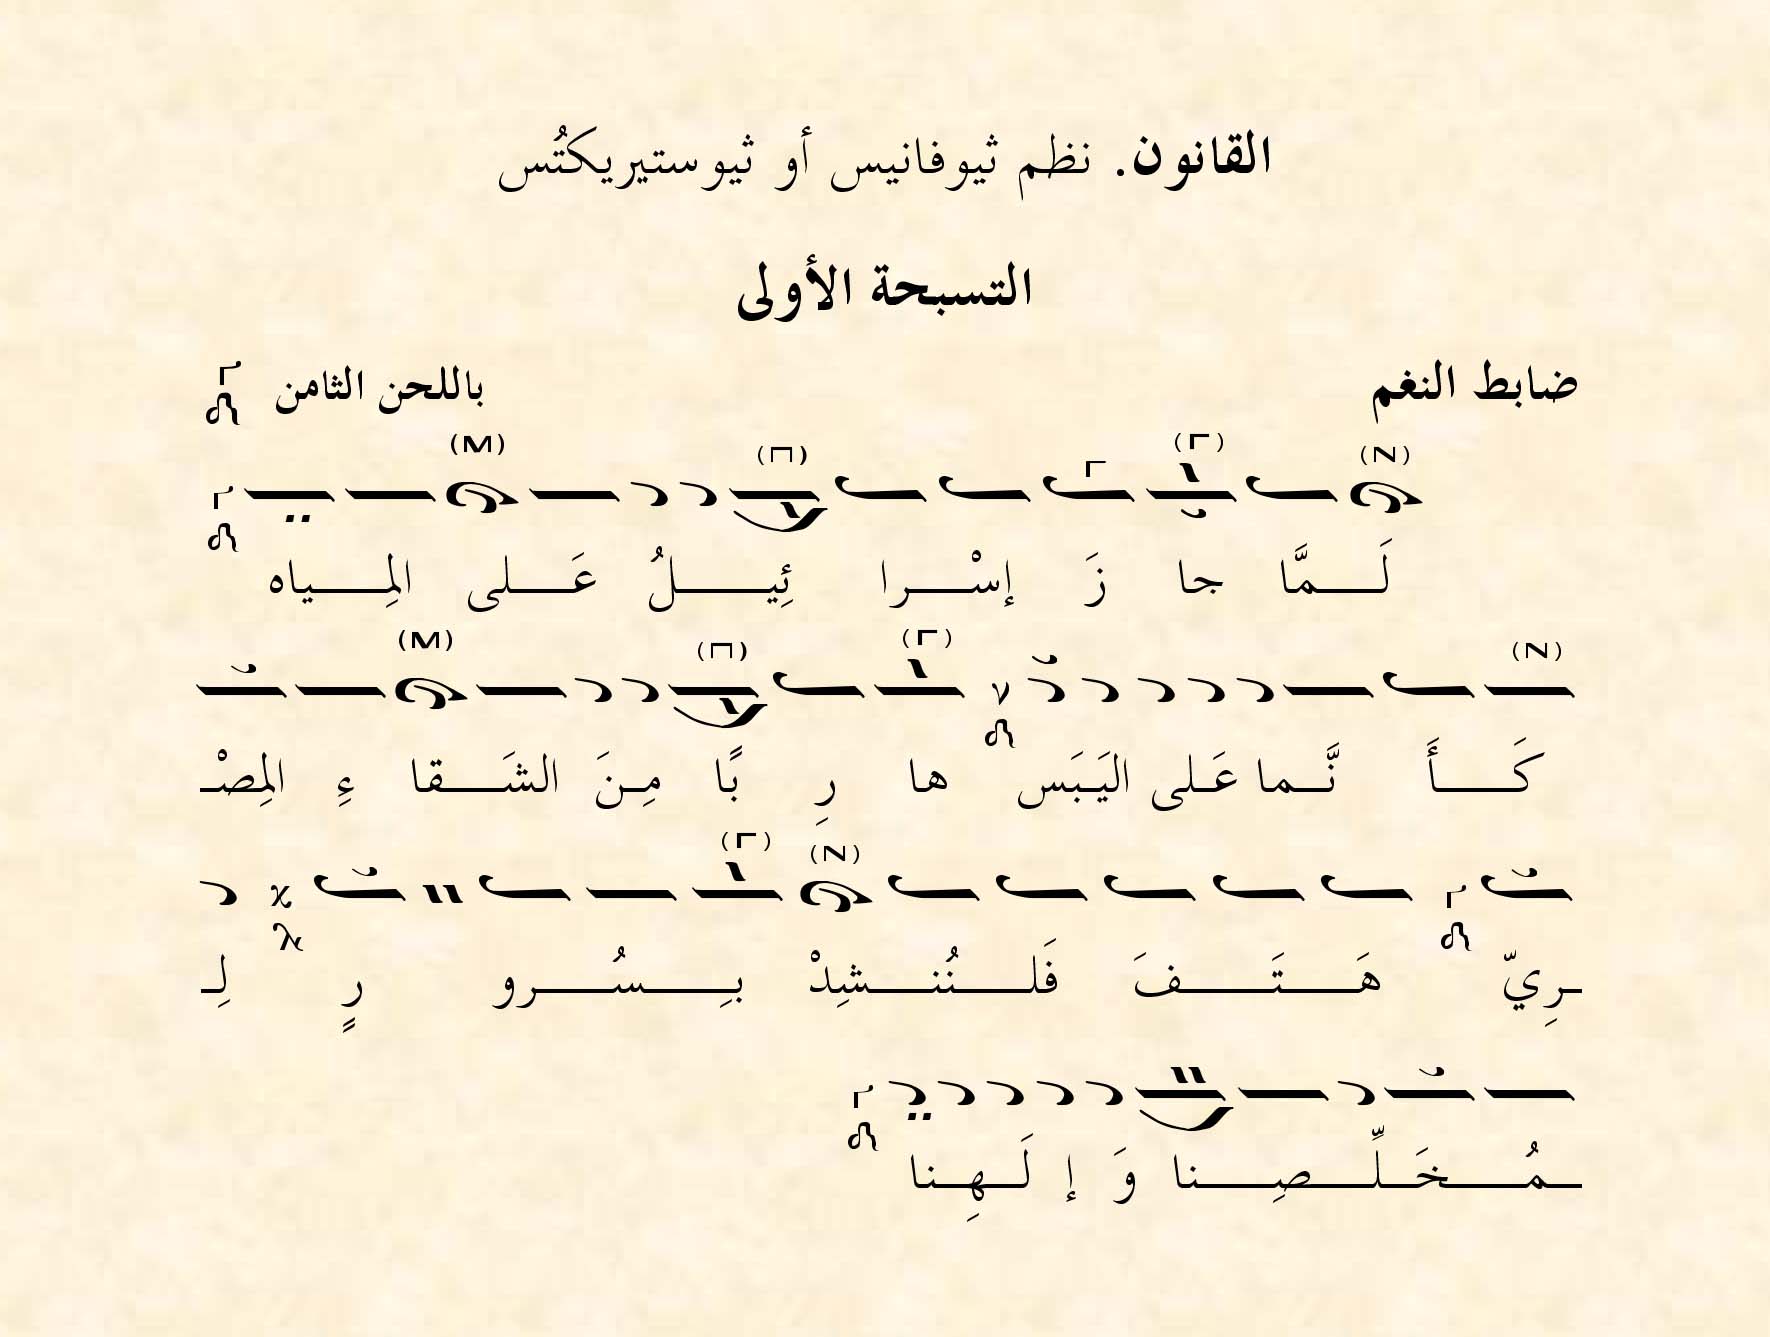 القانون. نظم ثيوفانيس أو ثيوستيريكتُس
التسبحة الأولى
ضابط النغم باللحن الثامن
(N) (Γ) Γ (Π) (M)
لَـمَّا جا زَ إسْـرا ئِيـلُ عَـلى المِـياه
(N) ν (Γ) (Π) (M)
كَـأَ نَّـما عَـلى اليَـبَس ها رِ بًا مِـنَ الشَـقا ءِ المِصْـ
(N) (Γ) χ
ـرِيّ هَـتَـفَ فَلـنُنـشِدْ بِـسُـرو رٍ لِـ
ـمُـخَـلِّـصِـنا وَ إ لَـهِـنا